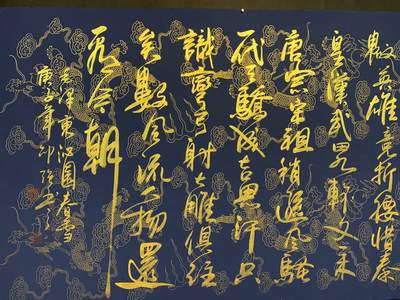 數英雄竞折腰惜秦
皇漢武略輸文采
唐宗宋祖稍遜風騷
一代天驕成吉思汗只
識彎弓射大雕俱往
矣數風流人物還
看今朝
毛澤東沁園春雪
庚子年印強